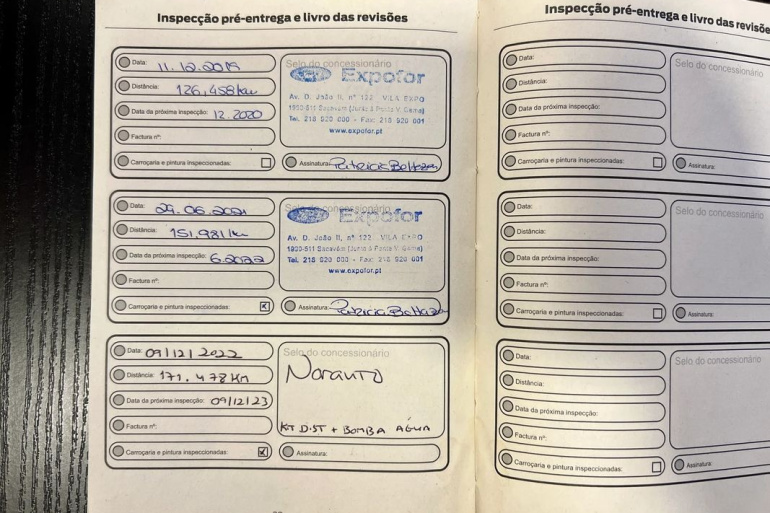 Inspecção pré-entrega e livro das revisões
Data: 11.12.2019
Distância: 126,458 km
Data da próxima inspecção: 12.2020
Factura nº:
Carroçaria e pintura inspeccionadas:
Selo do concessionário
Ford Expofor
Av. D. João II, nº 122 VILA EXPO
Tel. 218 920 000 - Fax: 218 920 001
www.expofor.pt
Assinatura: Patricia
Data: 29.06.2021
Distância: 151,981 km
Data da próxima inspecção: 6.2022
Factura nº:
Carroçaria e pintura inspeccionadas:
Selo do concessionário
Ford Expofor
Av. D. João II, nº 122 VILA EXPO
Tel. 218 920 000 - Fax: 218 920 001
www.expofor.pt
Assinatura: Patricia
Data: 09/12/2022
Distância: 171.478 Km
Data da próxima inspecção: 09/12/23
Factura nº:
Carroçaria e pintura inspeccionadas:
Selo do concessionário
Norauto
KT DIST + BOMBA ÁGUA
Assinatura:
Inspecção pré-entrega e livro das revisõe
Data:
Distância:
Data da próxima inspecção:
Factura nº:
Carroçaria e pintura inspeccionadas:
Selo do concessionário
Assinatura:
Data:
Distância:
Data da próxima inspecção:
Factura nº:
Carroçaria e pintura inspeccionadas:
Selo do concessionário
Assinatura:
Data:
Distância:
Data da próxima inspecção:
Factura nº:
Carroçaria e pintura inspeccionadas:
Selo do concessionário
Assinatura: